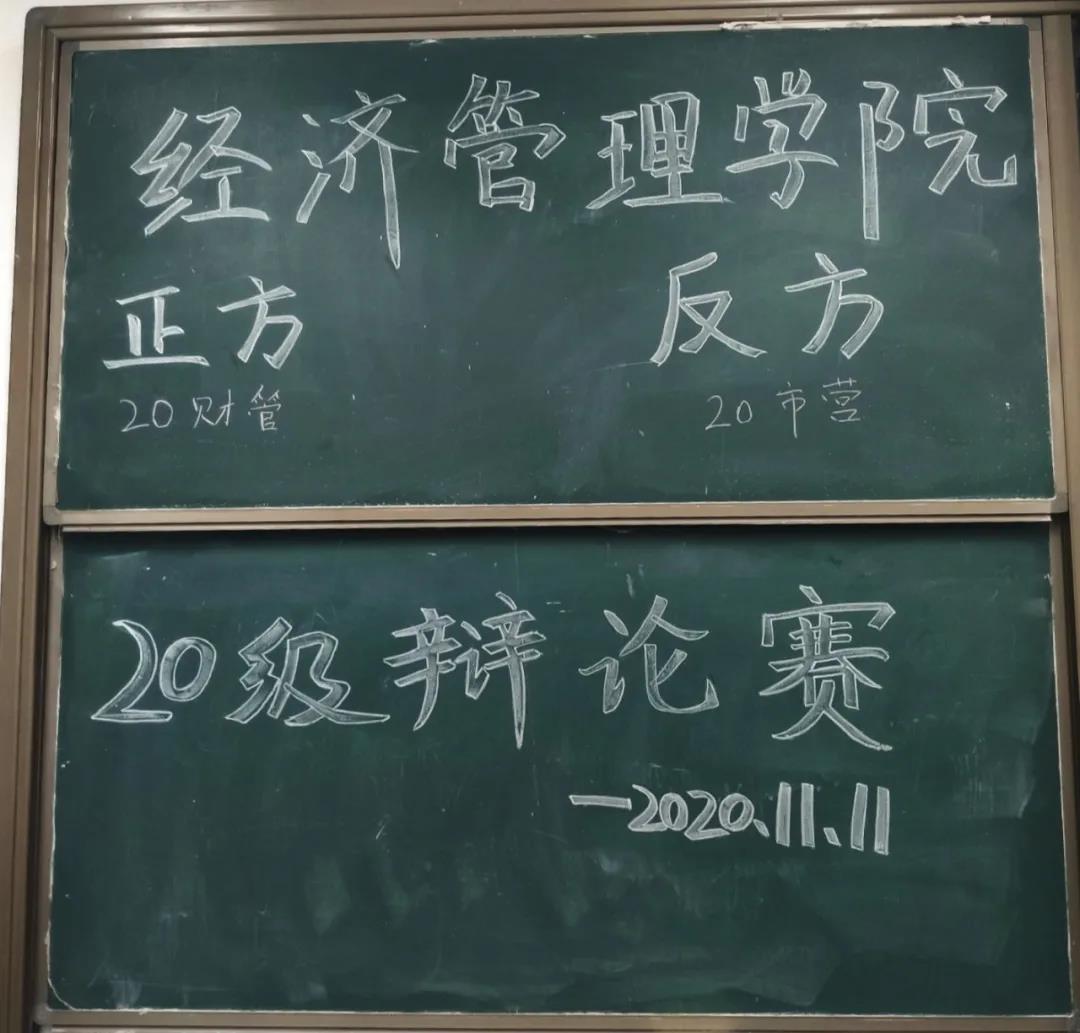 经济管理学院
正方 反方
20财管 20市营
20级辩论赛
—2020、11、11